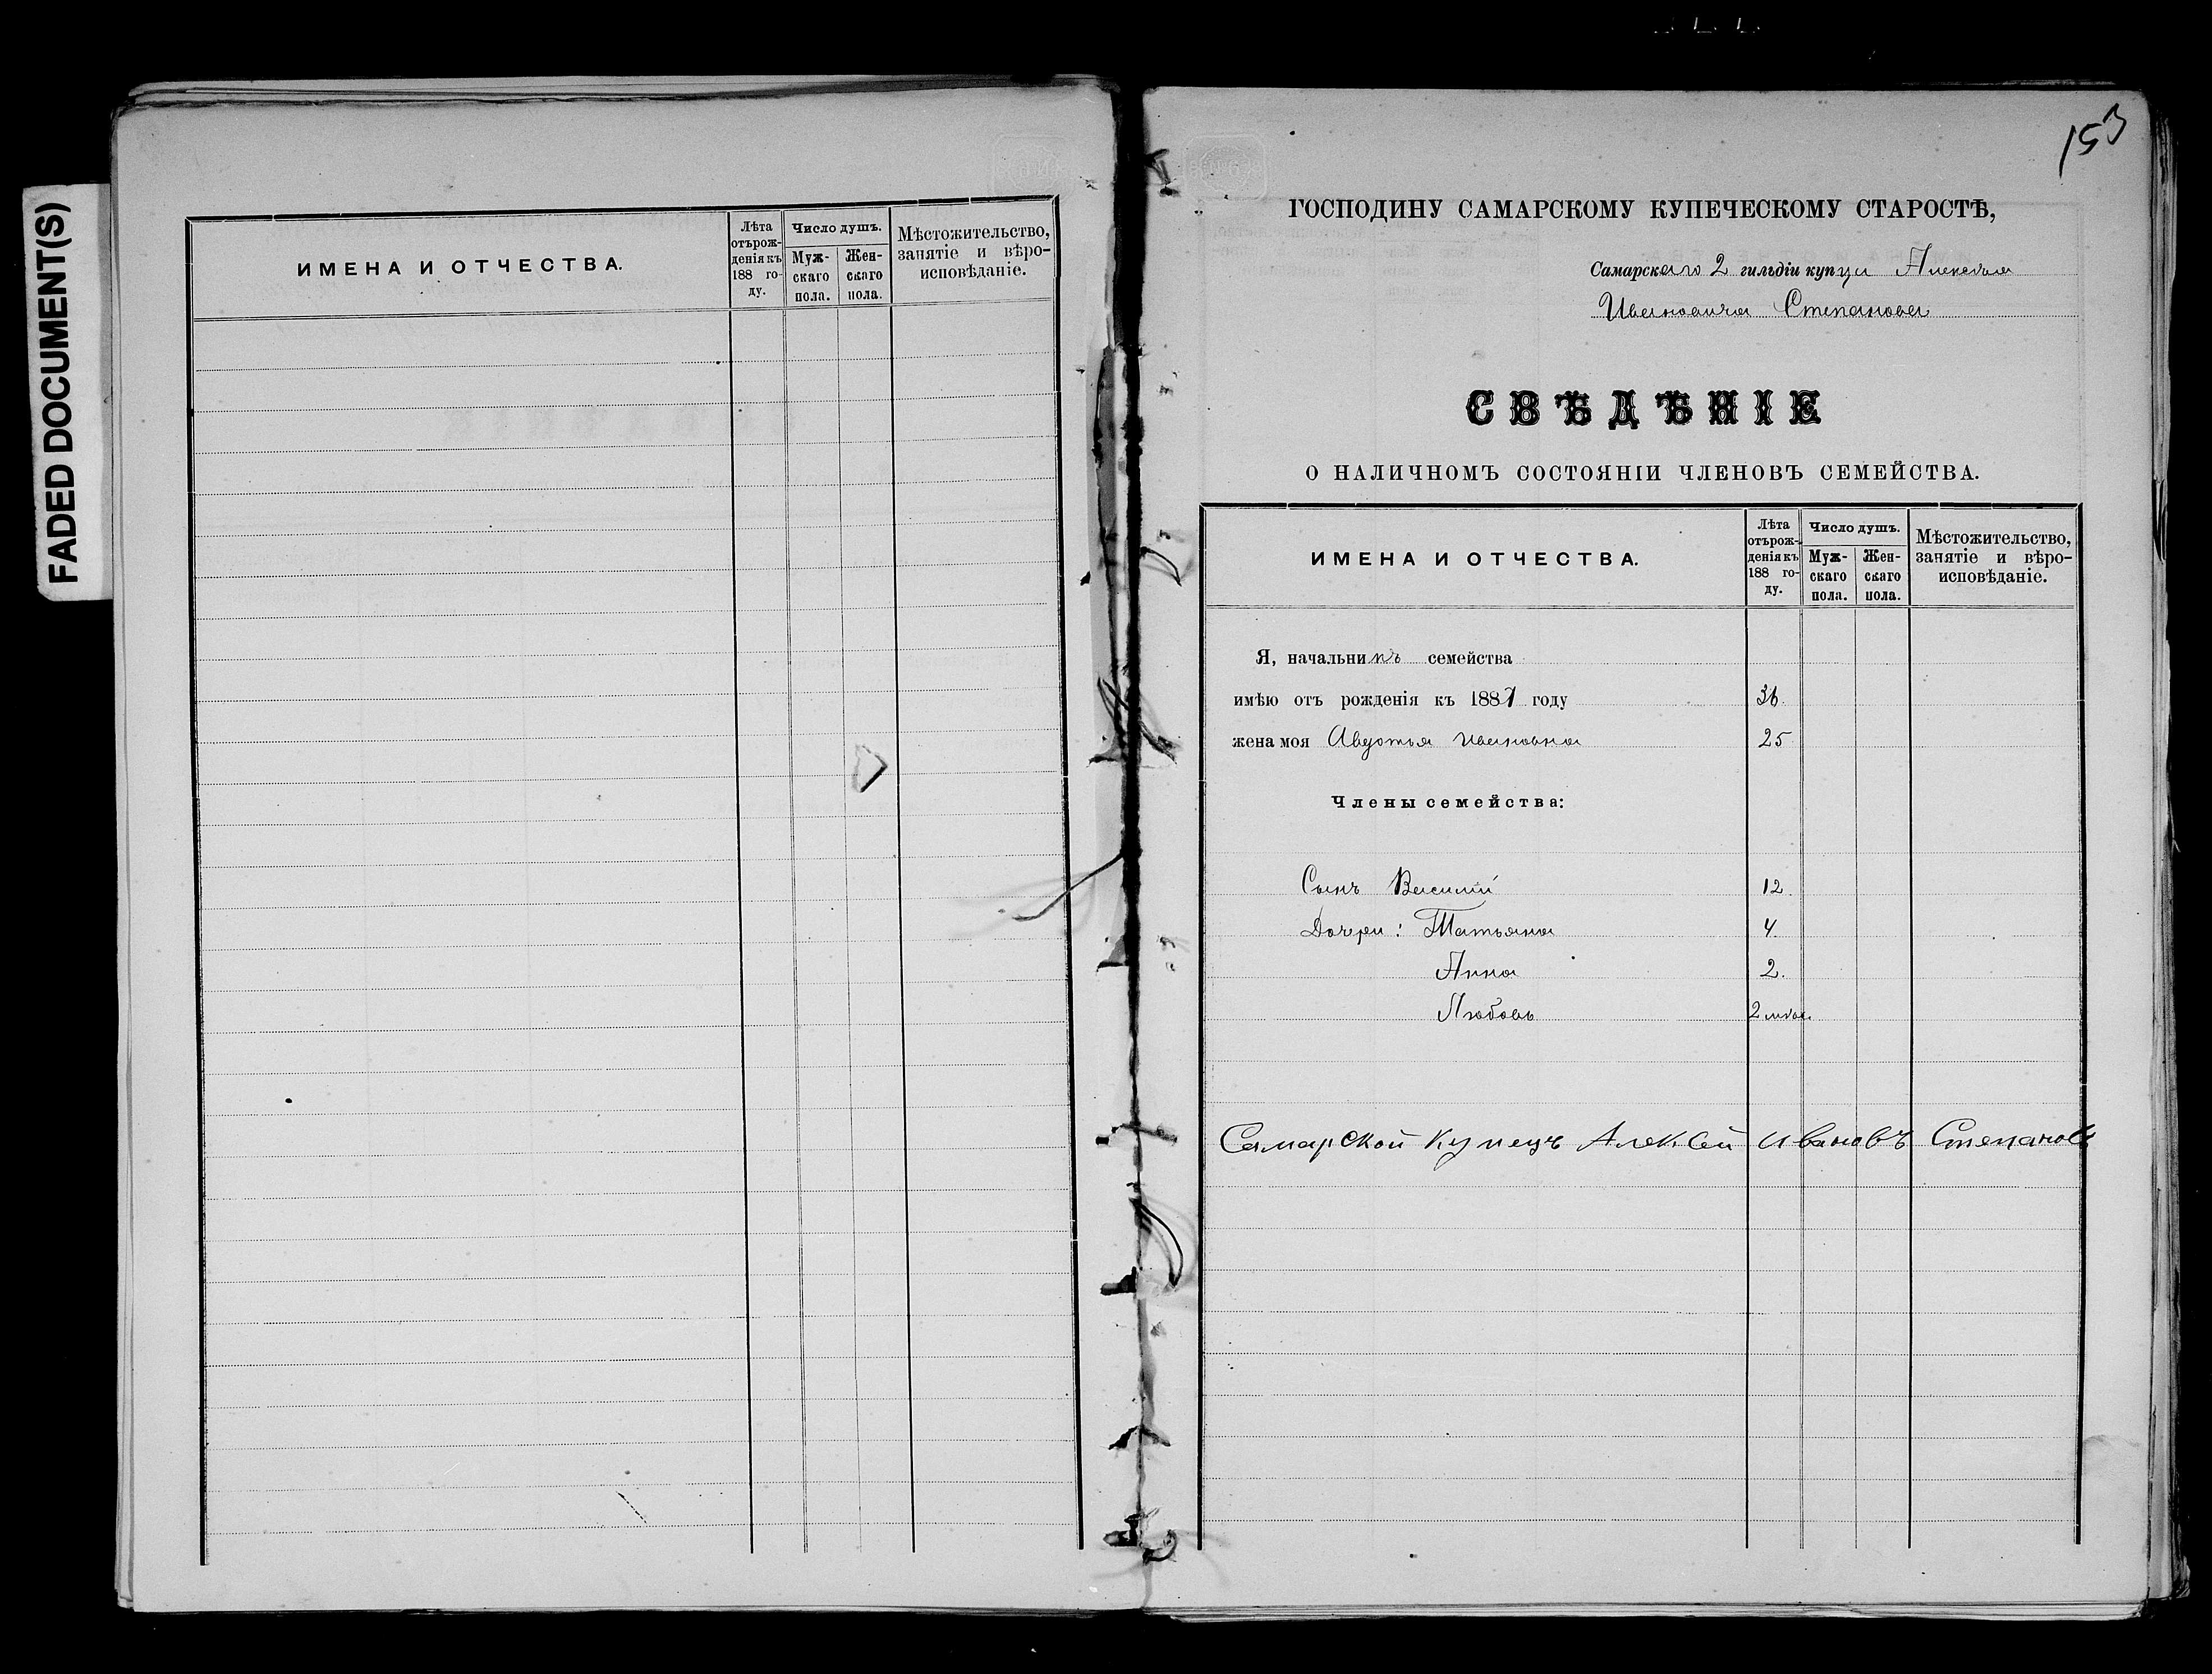 FADED DOCUMENT(S)
ИМЕНА И ОТЧЕСТВА.
Лѣта
отърож-
денія къ
188 го-
ду.
Число душъ.
Муж-
скаго
пола.
Жен-
скаго
пола.
Мѣстожительство,
занятіе и вѣро-
исповѣданіе.
153
ГОСПОДИНУ САМАРСКОМУ КУПЕЧЕСКОМУ СТАРОСТѢ,
Самарскаго 2 гильдіи купца Алексѣя
Ивановича Степанова
СВѢДѢНІЕ
О НАЛИЧНОМЪ СОСТОЯНІИ ЧЛЕНОВЪ СЕМЕЙСТВА.
ИМЕНА И ОТЧЕСТВА.
Лѣта
отърож-
денія къ
188 го-
ду.
Число душъ.
Муж-
скаго
пола.
Жен-
скаго
пола.
Мѣстожительство,
занятіе и вѣро-
исповѣданіе.
Я, начальникъ семейства
имѣю отъ рожденія къ 1887 году 36.
жена моя Авдотья Ивановна 25
Члены семейства:
Сынъ Василій 12.
Дочери: Татьяна 4.
Анна 2.
Любовь 2
Самарской Купецъ Алексей Ивановъ Степановъ